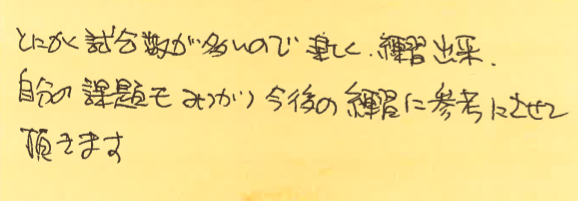 とにかく試合数が多いので楽しく、練習出来、
自分の課題もみつかり今後の練習に参考にさせて
頂きます